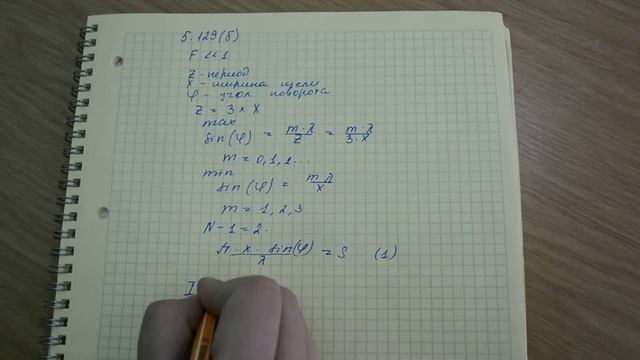 5.129(б)
F << 1
Z - период
X - ширина щели
φ - угол поворота
Z = 3 * X
max
sin(φ) = m·λ/Z = m·λ/3·X
m = 0, 1, 2 ...
min
sin(φ) = m λ/X
m = 1, 2, 3
N - 1 = 2.
π · X · sin(φ)/λ = S (1)
I